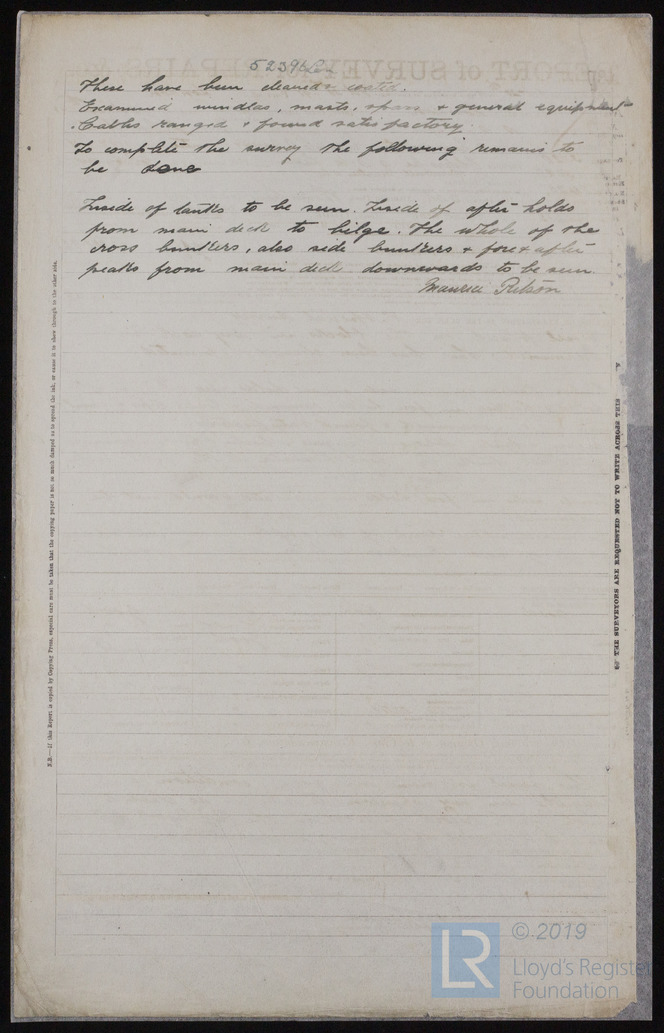 52396
These have been cleaned & coated.
Examined windlas, masts, spars & general equipment
. Cables ranged & found satisfactory.
To complete the survey the following remains to
be done
Inside of tanks to be seen. Inside of after holds
from main deck to bilge. The whole of the
cross bunkers, also side bunkers & fore & after
peaks from main deck downwards to be seen.
Maurice
N.B.—If this Report is copied by Copying Press, especial care must be taken that the copying paper is not so much damped as to spread the ink, or cause it to show through to the other side.
THE SURVEYORS ARE REQUESTED NOT TO WRITE ACROSS THIS
REPORT of SURVEY REPAIRS
LR
© 2019
Lloyd's Register
Foundation